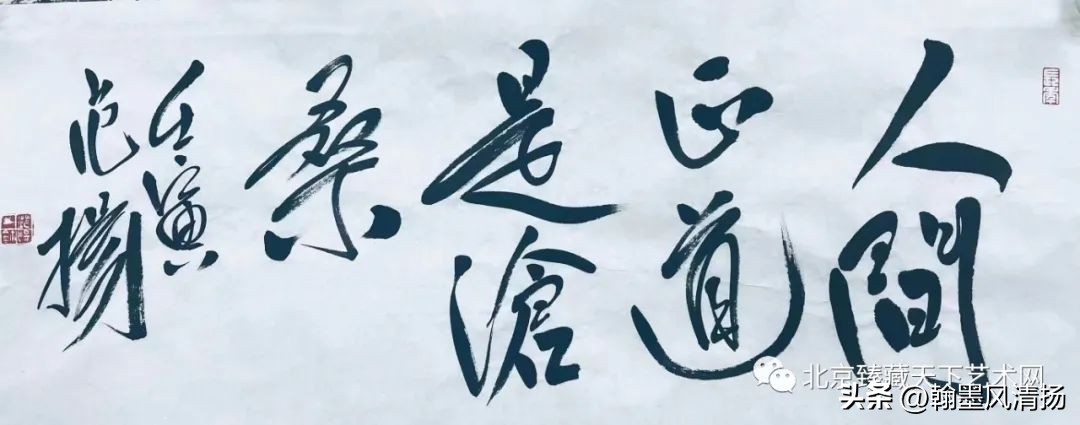 人間
正道
是滄
桑
壬寅
范揚
北京臻藏天下艺术网
头条 @翰墨风清扬